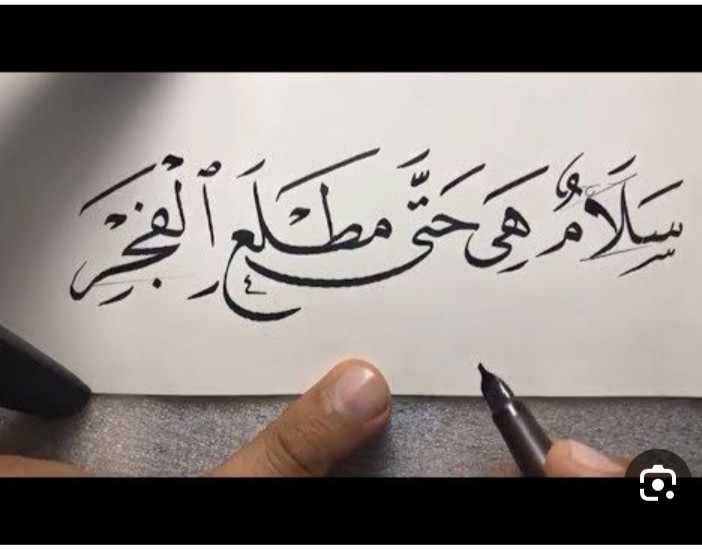 سَلَامٌ هِىَ حَتَّى مَطْلَعِ ٱلْفَجْرِ